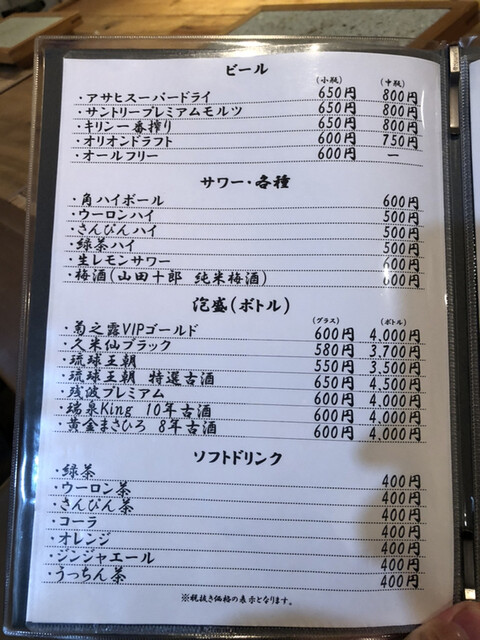 ビール
(小瓶) (中瓶)
・アサヒスーパードライ 650円 800円
・サントリープレミアムモルツ 650円 800円
・キリン一番搾り 650円 800円
・オリオンドラフト 600円 750円
・オールフリー 600円 ー
サワー・各種
・角ハイボール 600円
・ウーロンハイ 500円
・さんぴんハイ 500円
・緑茶ハイ 500円
・生レモンサワー 600円
・梅酒(山田十郎 純米梅酒) 600円
泡盛(ボトル)
(グラス) (ボトル)
・菊之露VIPゴールド 600円 4,000円
・久米仙ブラック 580円 3,700円
・琉球王朝 550円 3,500円
・琉球王朝 特選古酒 650円 4,500円
・残波プレミアム 600円 4,000円
・瑞泉King 10年古酒 600円 4,000円
・黄金まさひろ 8年古酒 600円 4,000円
ソフトドリンク
・緑茶 400円
・ウーロン茶 400円
・さんぴん茶 400円
・コーラ 400円
・オレンジ 400円
・ジンジャエール 400円
・うっちん茶 400円
※税抜き価格の表示となります。